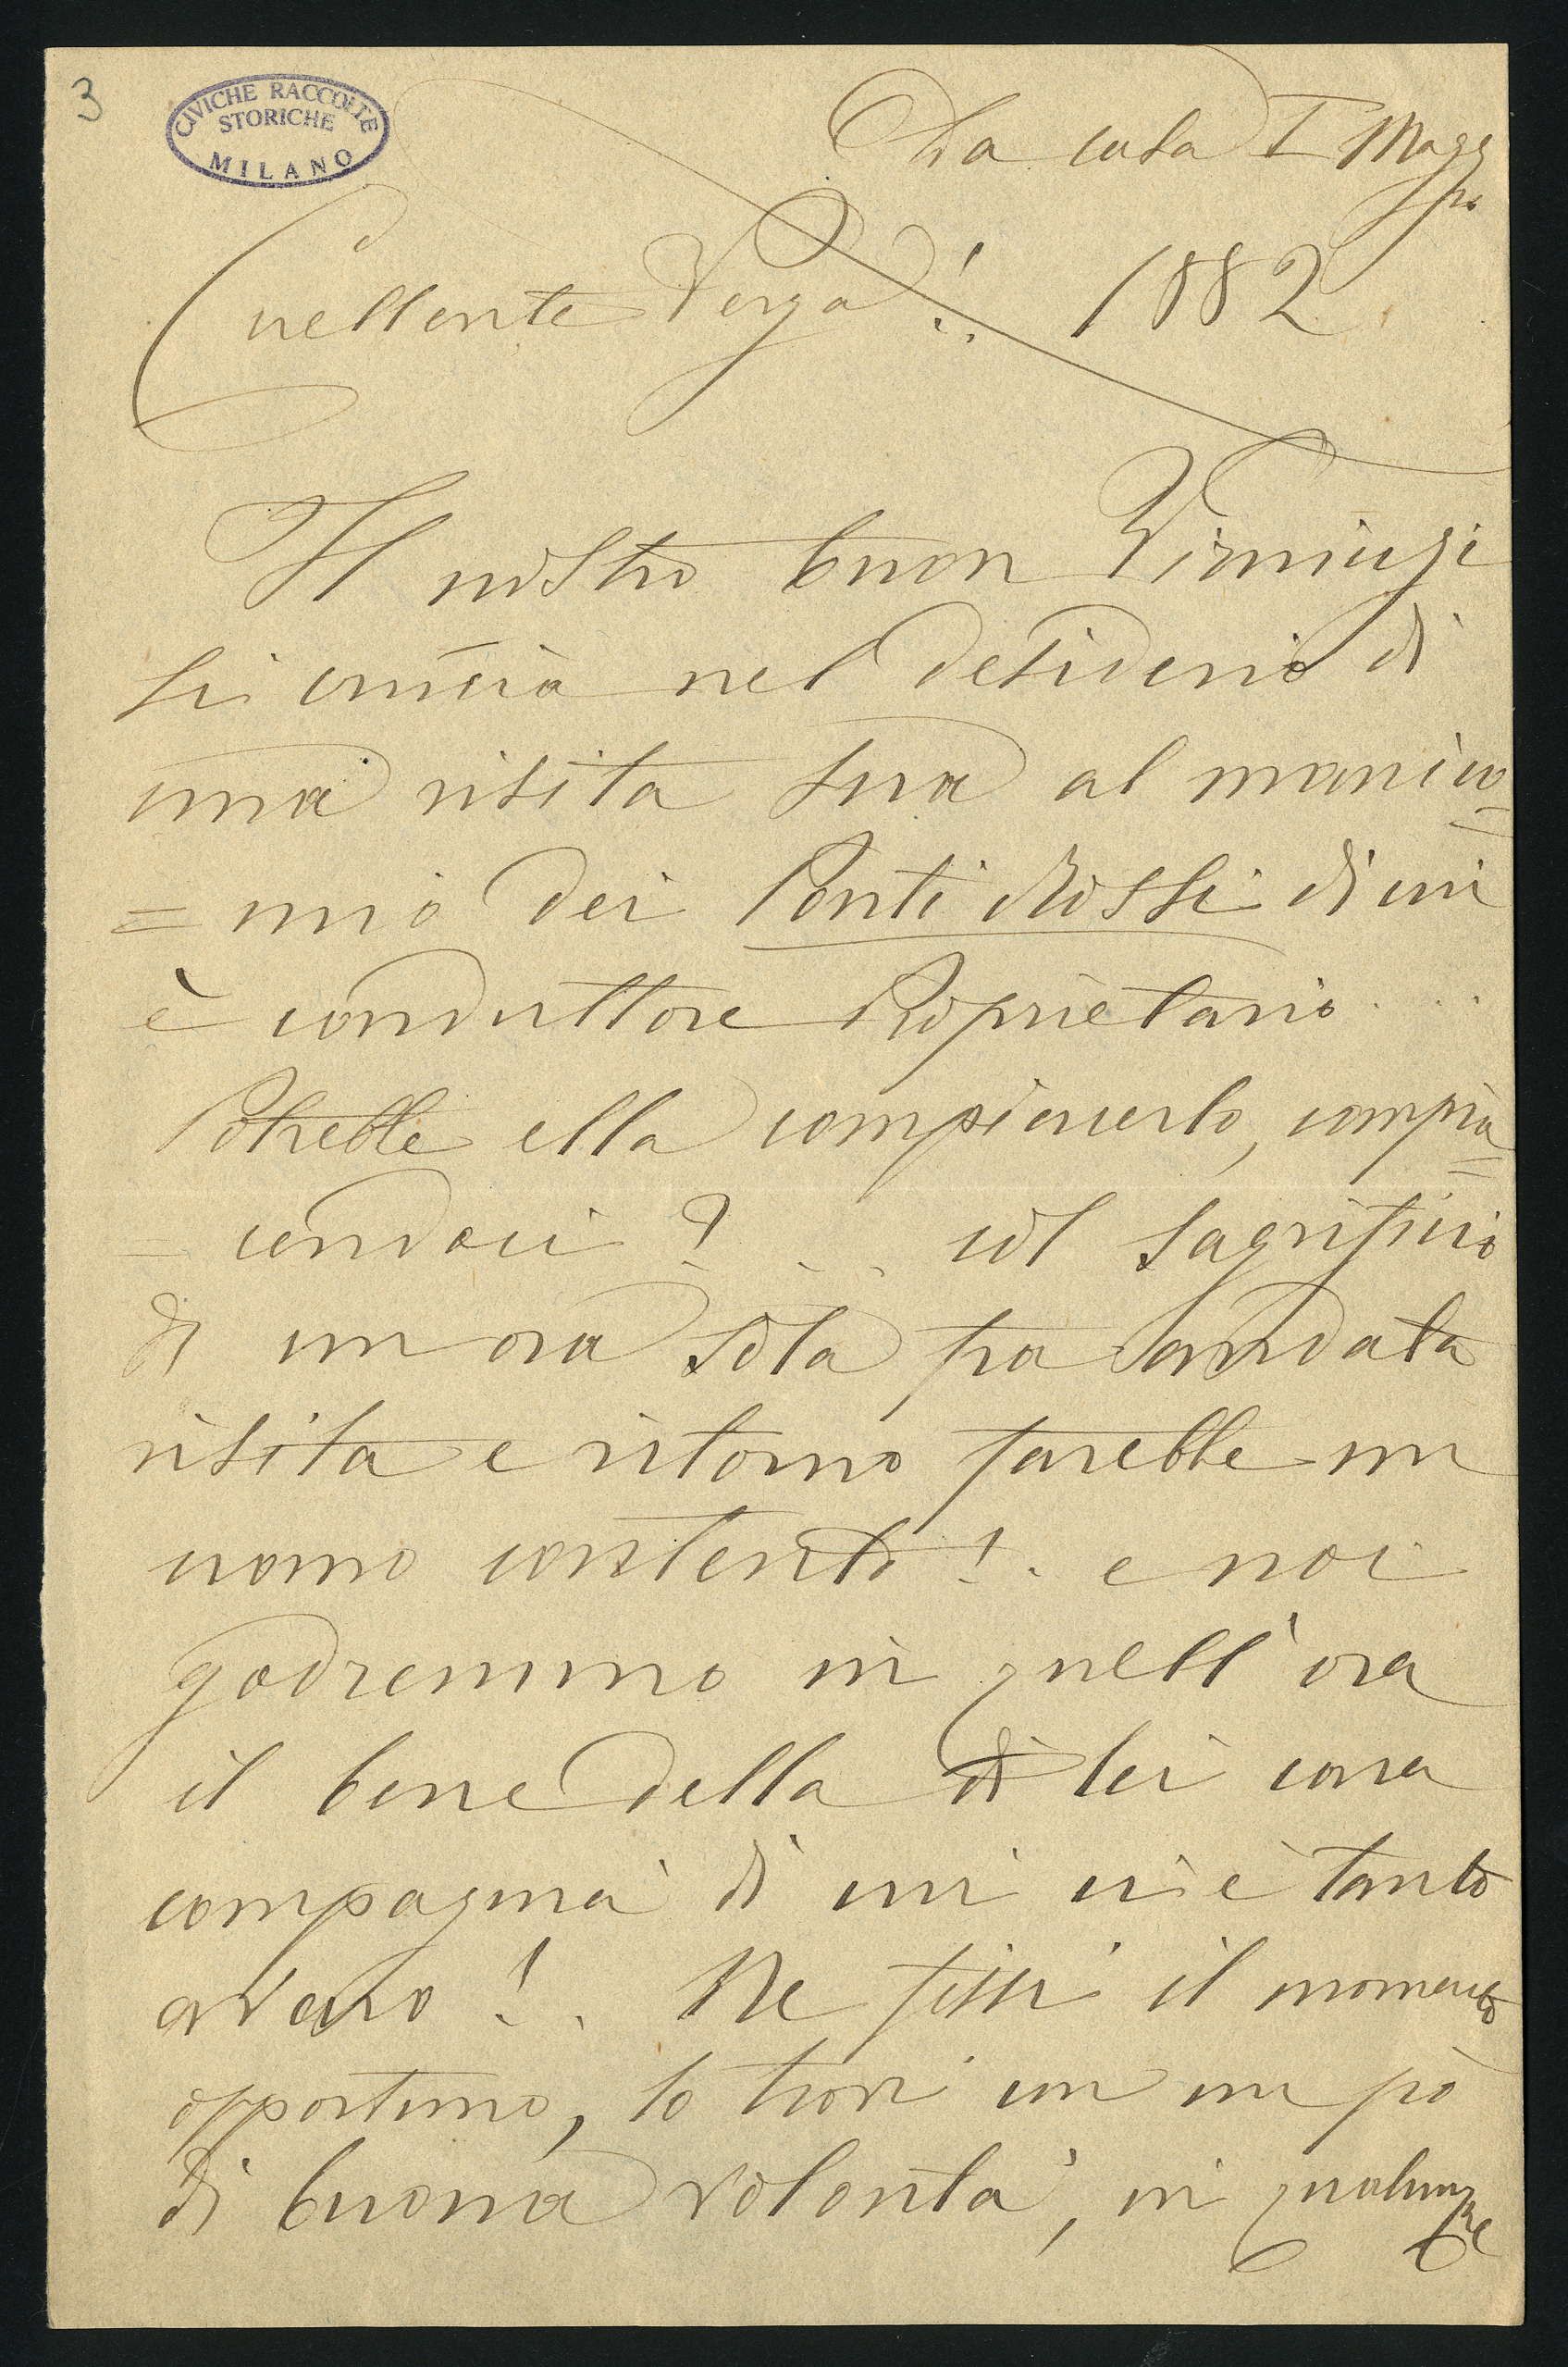 3
CIVICHE RACCOLTE
STORICHE
MILANO
Da casa I Magg
gio
Eccellente Verga!.. 1882
Il nostro buon Virnicchi
si crucia nel desiderio di
una visita sua al manico=
=mio dei Ponti Rossi di cui
è conduttore Proprietario...
Potrebbe ella compiacerlo, compia=
=cendoci?... col sagrificio
di un ora sola fra l'andata
visita e ritorno farebbe un
uomo contento!. e noi
godremmo in quell'ora
il bene della di lei cara
compagnia di cui ci è tanto
avaro!. Ne fissi il momento
opportuno, lo trovi con un pò
di buona volontà, in qualunque